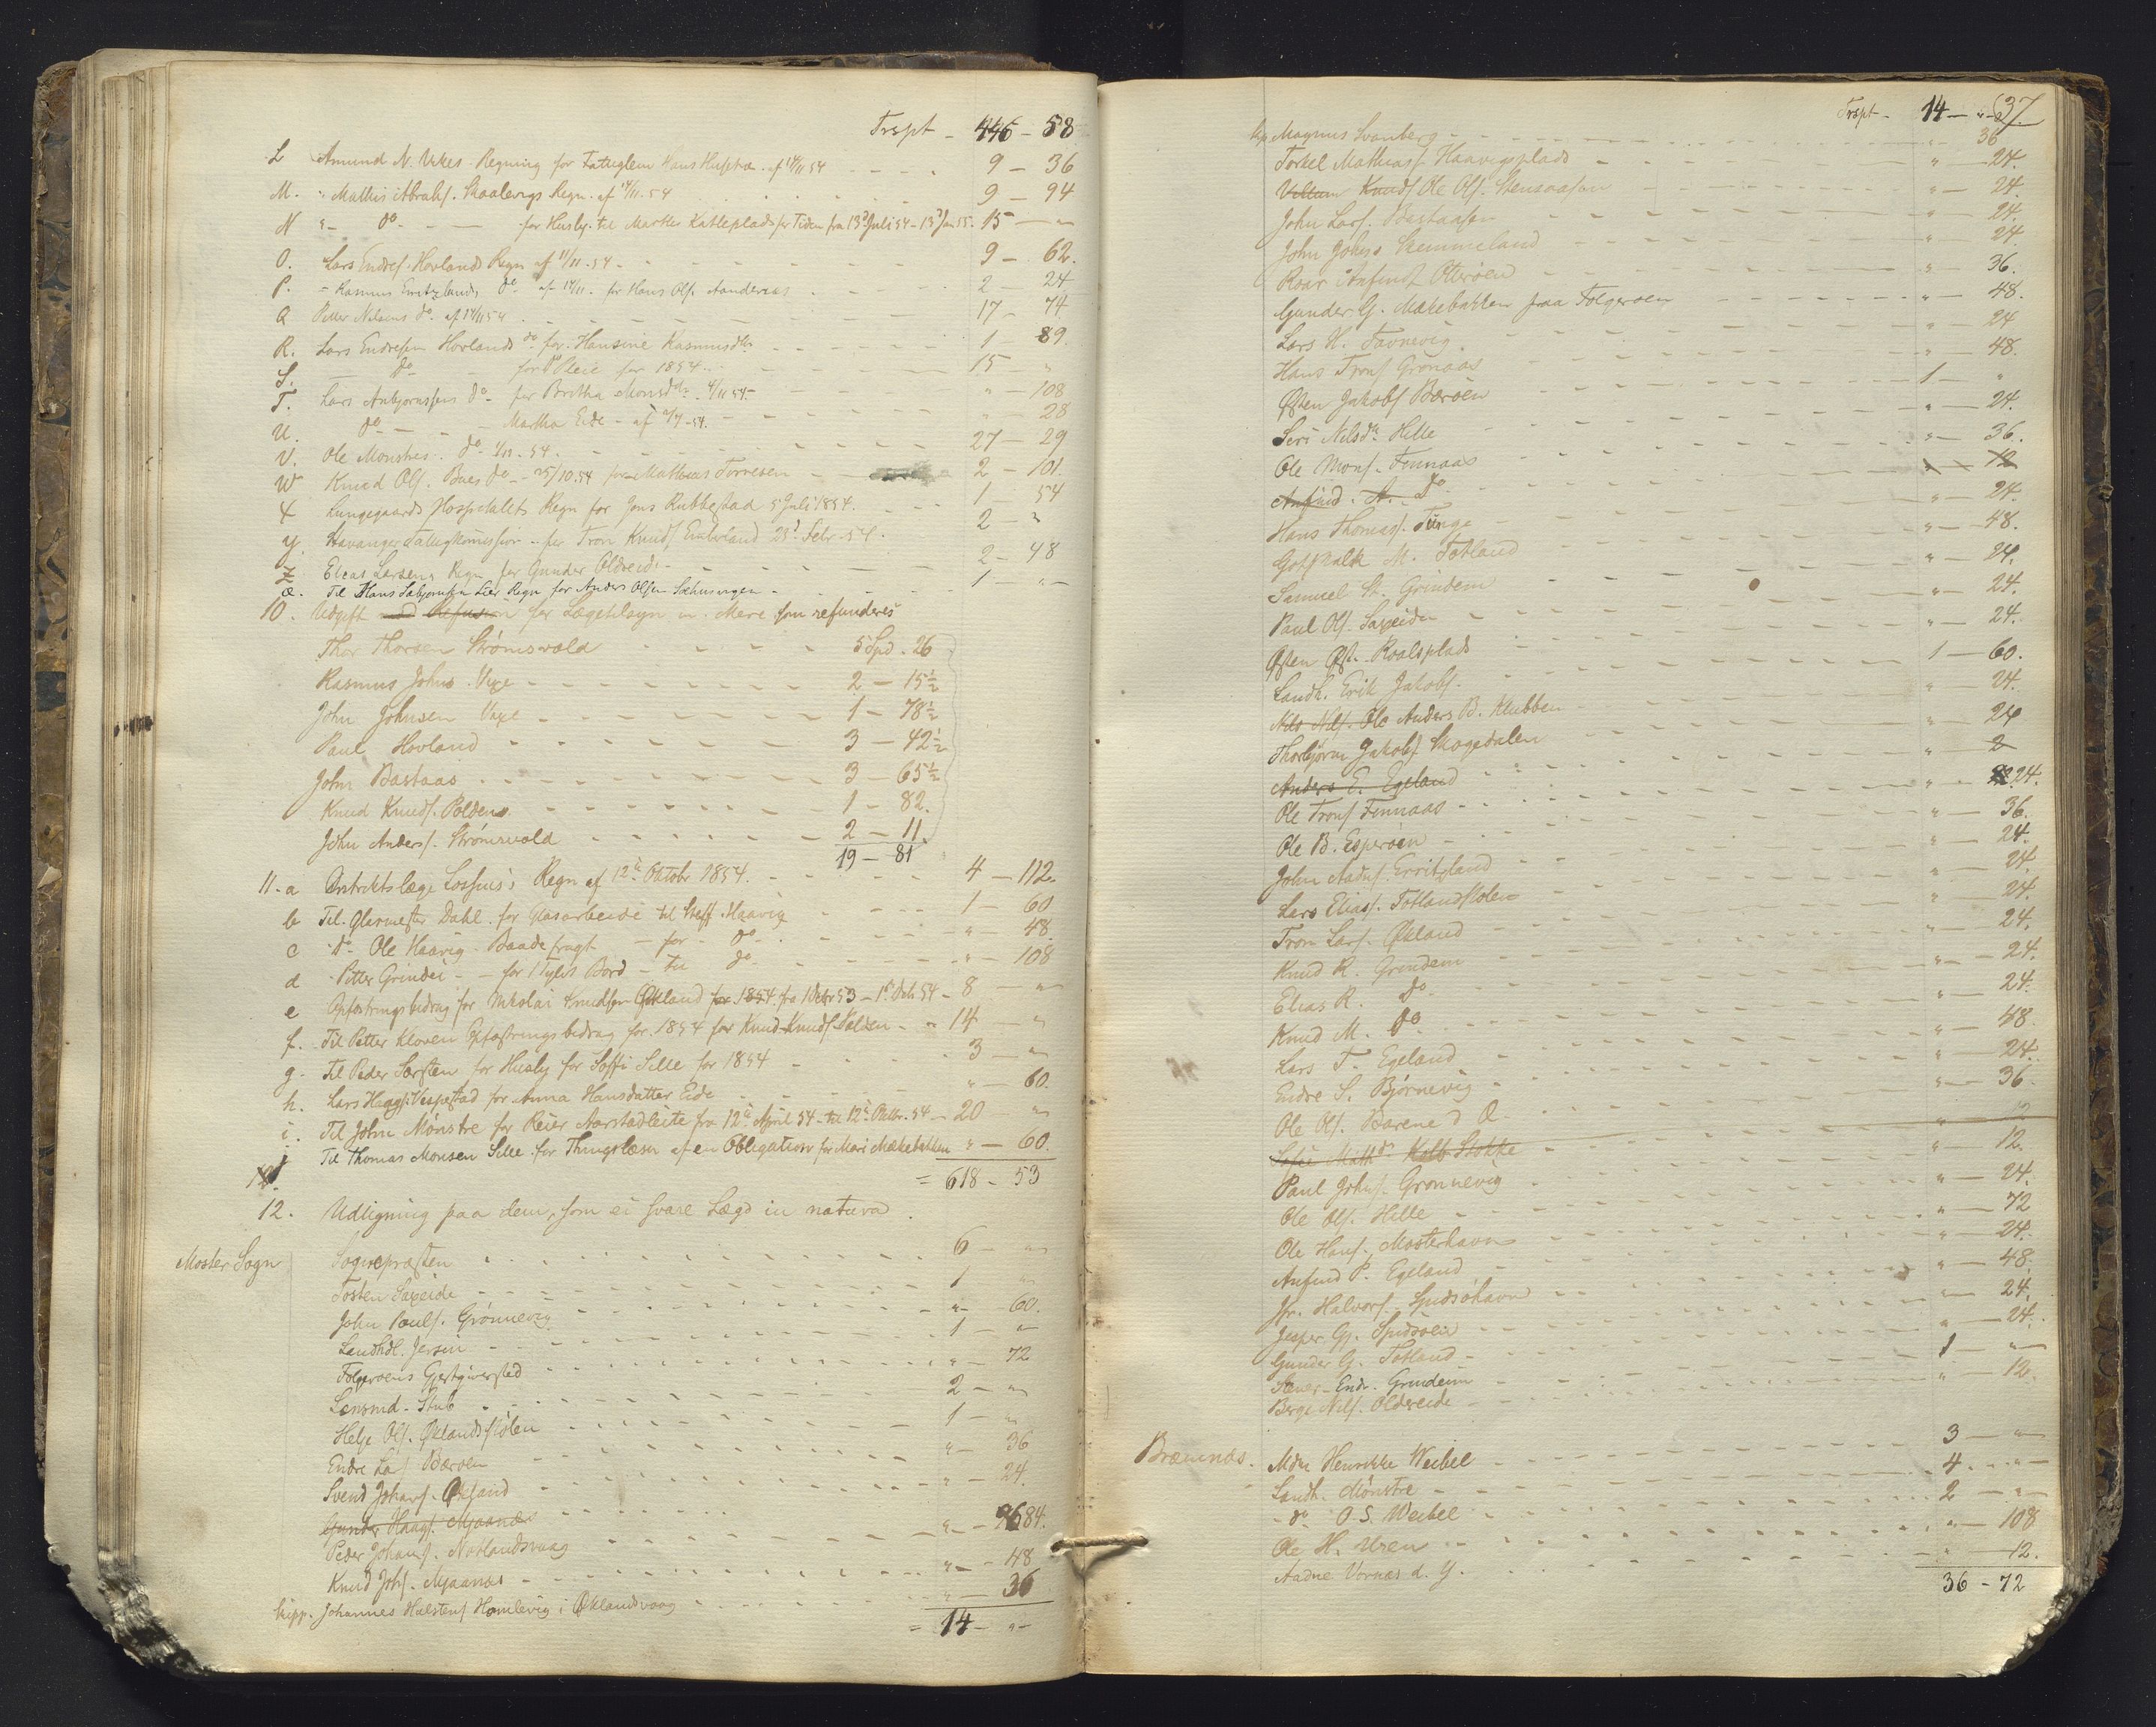 Trspt - 446 - 58
L Amund N. Urkes Regning for Fattiglem Hans Hustru af 14/11 54 - - 9 - 36
M. " Mathis Abrahs. Skaalevigs Regn. af 14/11. 54 9 - 94
N "- do - - for Husly til Marthe Katlepladsen for Tiden fra 13d Juli 54 - 13d Jan 55. 15 - "
O. Lars Endres. Hovlands Regn af 11/11 54 - 9 - 62.
P. - Rasmus Erritzlands do af 14/11. for Hans Ols. Aanderaas 2 - 24
Q Petter Nelsens do. af 14/11 54 17 - 74
R. Lars Endresen Hovlands do for Hansine Rasmusdtr 1 - 89.
S. - do - for Pleie for 1854 - 15 "
T. Lars Anbjørnsens do - for Britha Monsdtr. 4/11 54 - " - 108
U. do - - - Martha Eide - af 2/7 - 54. " - 28
V. Ole Monstres. do 1/11 - 54 - 27 - 29
W Knud Ols. Bues do - 25/10.54 for Mathias Tornesen 2 - 101.
X Lungegaards Hospitalets Regn for Jens Rubbestad 5 Juli 1854. 1 - 54
Y. Stavanger Fattigkomission - for Tron Knuds 23d Febr. 54. 2 - "
Z Elias Larsens Regn for Gunder Oldreide - 2 - 48
Æ. Til Hans Sabjørnsen Lier Regn for Anders Olsen Sæhusvigen - 1 - "
10. Udgift Refusion for Lægetilsyn m. Mere som refunderes
Thor Thorsen Strømsvold 5 Spd. 26
Rasmus Johns. Vexe - 2 - 15 1/2
John Johnsen Vexe - 1 - 78 1/2
Paul Hovland - 3 - 42 1/2
John Bastaas - 3 - 65 1/2
Knud Knuds. Polden - 1 - 82.
John Anders. Strømsvold - 2 - 11.
19 - 81
11. a Distriktslæge Lossius's Regn af 12te Oktobr 1854. 4 - 112.
b Til Glasmester Dahl for Glasarbeide til Steff. Haavig 1 - 60
c do Ole Haavig. Baadefragt - for - do - " - 48.
d Petter Grindei - for 1 Tylvt Bord - til do - " - 108
e Opfostringsbidrag for Nikolai Knudsen Økland for 1854. fra 1 Oktr 53 - 1st Okt 54 - 8 - "
f. Til Petter Kloven Opfostringsbidrag for 1854 for Knud Knuds. Polden - 14 - "
g. Til Peder Sørsten for Husly for Soffi Sille for 1854 - 3 - "
h. Lars Haags. Vespestad for Anna Hansdatter Eide " - 60.
i. Til John Mønstre for Reier Aarstadleite fra 12te April 54 til 12te Oktbr. 54 - 20 - "
j Til Thomas Monsen Sille for Thinglæsn af en Obligation for Mari Mækebakken " - 60.
12. = 618 - 53
12. Udligning paa dem, som ei svare Lægd in natura
Moster Sogn Sognepræsten 6 - "
Tosten Saxeide 1 - "
John Pauls. Grønnevig " - 60.
Landhdl. Jersin - 1 - "
Folgerøens Gjestgiversted " - 72
Lensmd. Stub 2 - "
Helje Ols. Øklandsstølen 1 - "
Endre Lars Bærøen " - 36
Svend Johans. Økland " - 24.
Gunder Haags. Mjaanæs
Peder Johans. Notlandsvaag " - 84.
Knud Johs. Mjaanæs " - 48
Skipp. Johannes Halstens Hamlevig i Øklandsvaag " - 36
= 14 - " -
37.
Trspt - 14 - "
Skp Magnus Svanberg - " - 36
Torkel Mathias Haavigsplads " - 24.
Villum Knuds Ole Ols. Stensaasen " - 24.
John Lars. Bastaasen " - 24.
John Johns Skimmeland " - 24
Roar Anfinds Oterøen " - 36.
Gunder G. Mækebakken paa Folgerøen " - 48.
Lars H. Favnevig " - 24
Hans Trons Grønaas " - 48.
Østen Jakobs Bærøen 1 - "
Siri Nelsdtr Hille " - 24.
Ole Mons. Finnaas " - 36.
Anfind. A. do 12
Hans Thomas. Tunge " - 24.
Gotskalk M. Totland " - 48.
Samuel St. Grindem " - 24.
Paul Ols. Saxeide " - 24.
Østen Øst. Roalsplads " - 24.
Landh. Erik Jakobs. 1 - 60.
Nels Nels. Ole Anders B. Klubben " - 24.
Thorbjørn Jakobs Skogedalen " - 24
Anders E. Egeland " - 2
Ole Trons Finnaas - " - 24.
Ole B. Esperøen - " - 36.
John Aadns. Erritzland " - 24.
Lars Elias. Totlandsstølen " - 24.
Tron Lars. Økland " - 24.
Knud R. Grindem " - 24.
Elias R. do " - 24.
Knud M. do " - 24.
Lars T. Egeland " - 48.
Endre S. Bjørnevig " - 24.
Ole Ols. Barene d Æ. " - 36.
Sofie Mathdr Kolb Stokke
Paul Johns. Grønnevig " - 12.
Ole Ols. Hille " - 24.
Ole Hans. Mosterhavn " - 72
Anfind P. Egeland " - 24.
Jfr. Halvors. Spidsøhavn " - 48.
Jesper Gj. Spidsøen " - 24.
Gunder G. Totland - " - 24.
Stener Endr. Grindeim 1 - "
Berge Nels. Oldereide " - 12.
Bremnæs. Mdm Henrikke Weibel 3 - "
Landh. Mønstre 4 - "
- do O. S. Weibel 2 - "
Ole H. Uren " - 108
Aadne Vornæs d. Y. - 12.
36 - 72